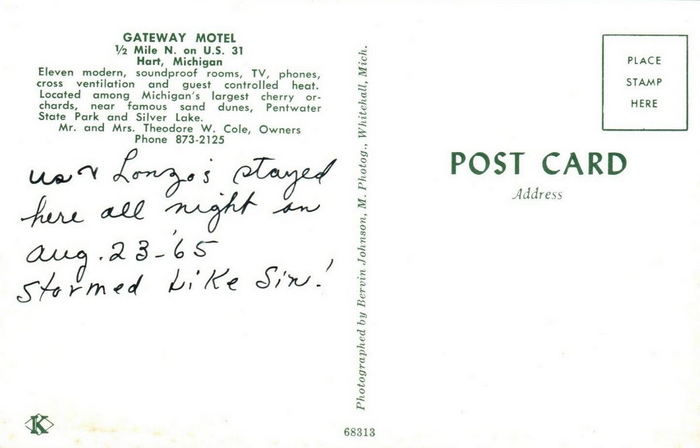 GATEWAY MOTEL
½ Mile N. on U.S. 31
Hart, Michigan
Eleven modern, soundproof rooms, TV, phones,
cross ventilation and guest controlled heat.
Located among Michigan's largest cherry or-
chards, near famous sand dunes, Pentwater
State Park and Silver Lake.
Mr. and Mrs. Theodore W. Cole, Owners
Phone 873-2125
us & Lonzo's stayed
here all night on
Aug. 23-'65
Stormed Like Sin!
K
Photographed by Bervin Johnson, M. Photog., Whitehall, Mich.
68313
PLACE
STAMP
HERE
POST CARD
Address